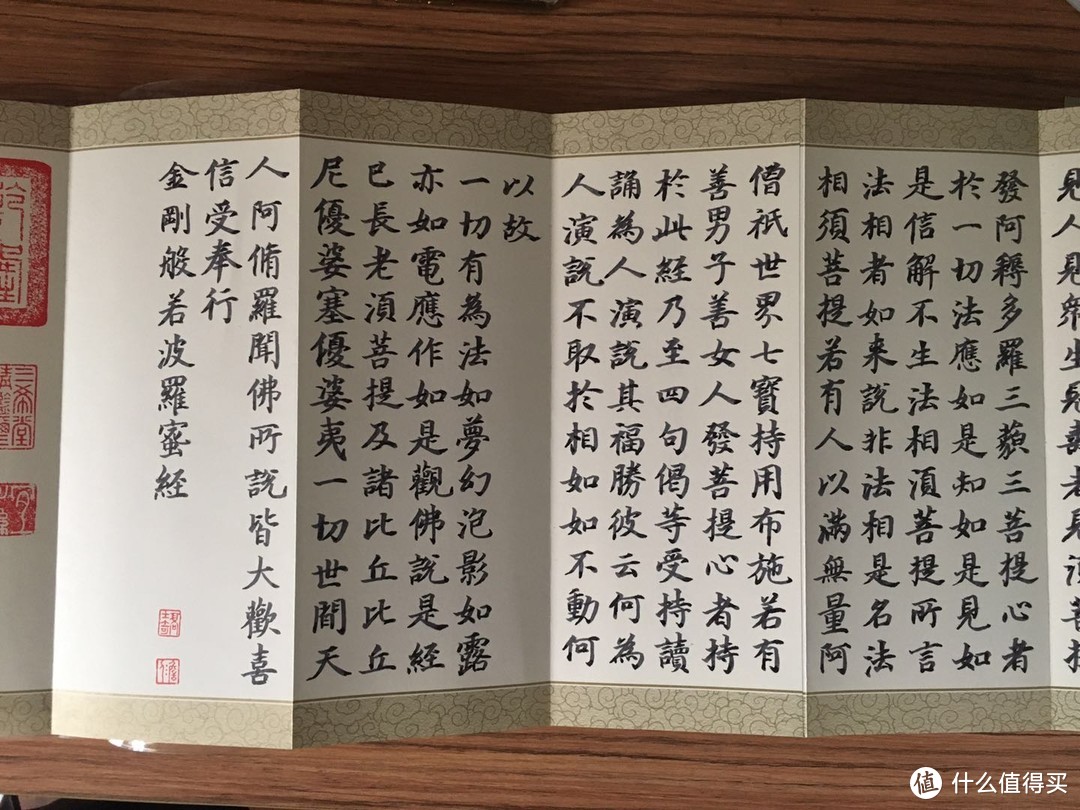 見人見眾生見壽者見須菩提
發阿耨多羅三藐三菩提心者
於一切法應如是知如是見如
是信解不生法相須菩提所言
法相者如来說非法相是名法
相須菩提若有人以滿無量阿
僧祇世界七寶持用布施若有
善男子善女人發菩提心者持
於此經乃至四句偈等受持讀
誦為人演說其福勝彼云何為
人演說不取於相如如不動何
以故
一切有為法如夢幻泡影如露
亦如電應作如是觀佛說是經
已長老須菩提及諸比丘比丘
尼優婆塞優婆夷一切世間天
人阿脩羅聞佛所說皆大歡喜
信受奉行
金剛般若波羅蜜経
三希堂
值 什么值得买